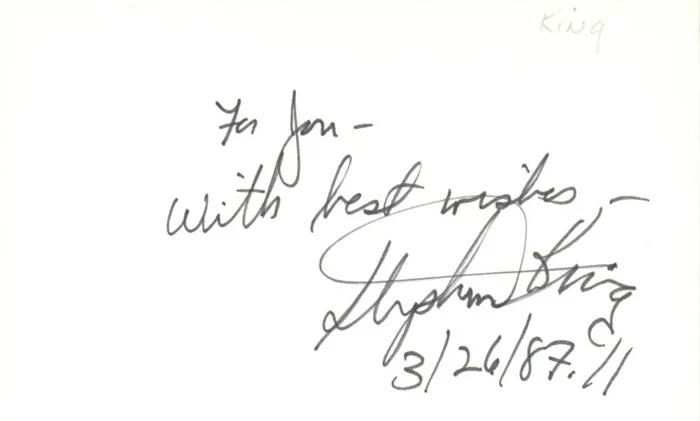 King
For Jon –
With best wishes, –
Stephen King
3/26/87.